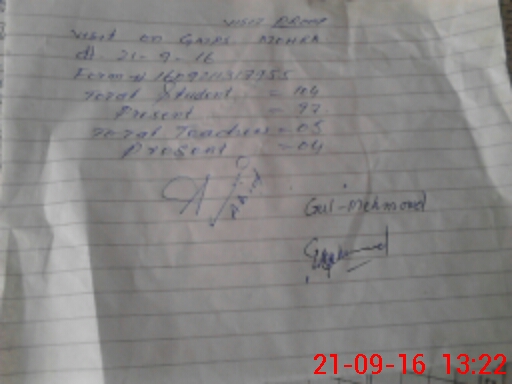 visit PROOF
visit on GMPS. MOHRA
dt. 21-9-16
Total Student = 104
Present = 97
Total Teachers = 05
Present = 04
Gul-Mehmood
21-09-16 13:22